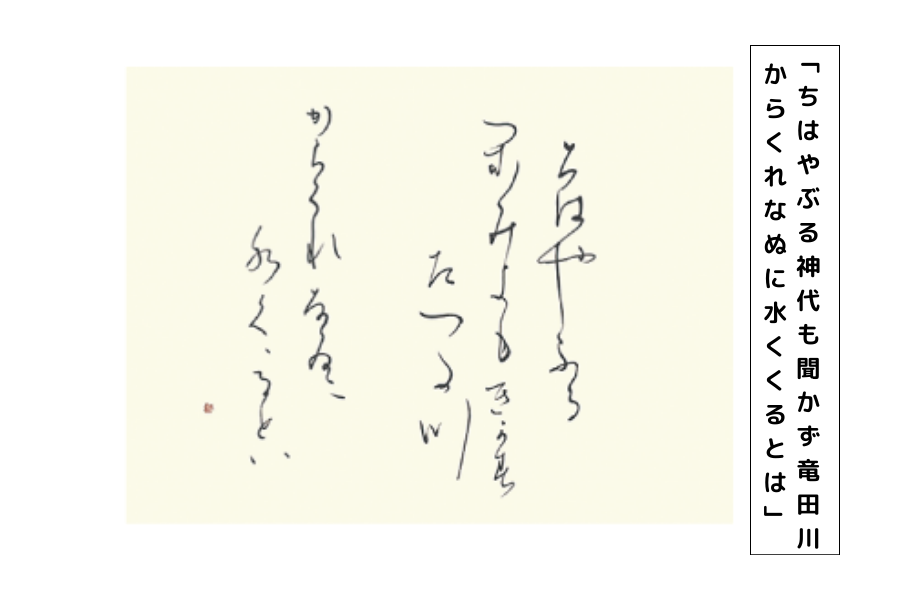 「ちはやぶる神代も聞かず竜田川
からくれなぬに水くくるとは」
ちはやふる
みよもきかす
たつた川
からくれなゐに
水くゝるとハ